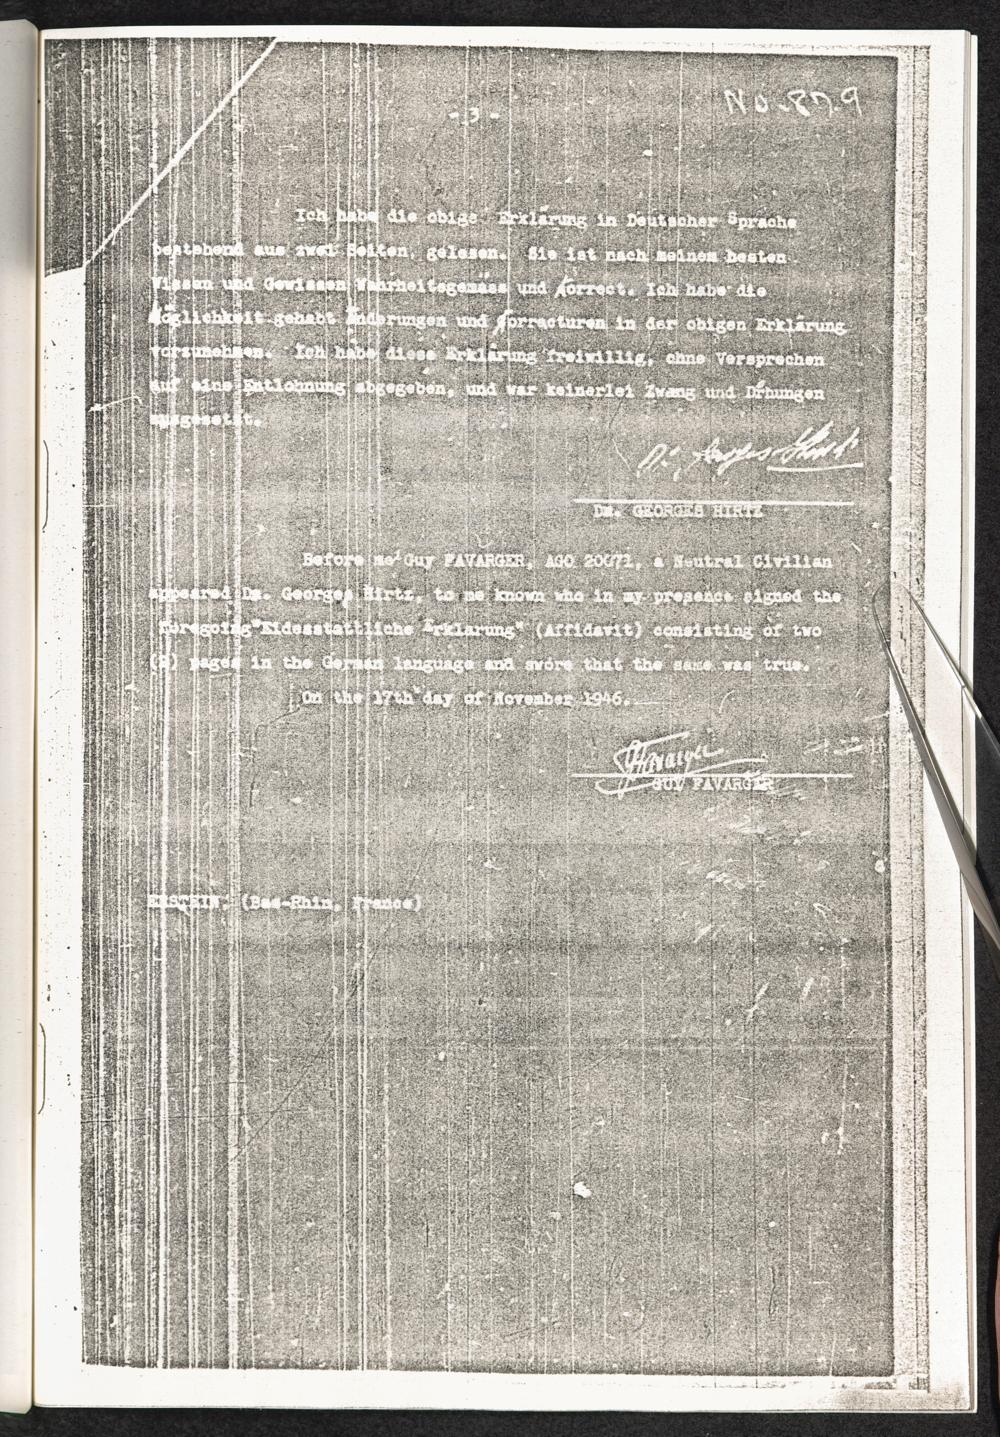 NO-879
- 3 -
Ich habe die obige Erklärung in Deutscher Sprache
bestehend aus zwei Seiten, gelesen. Sie ist nach meinem besten
Wissen und Gewissen Wahrheitsgemäss und Korrect. Ich habe die
Möglichkeit gehabt Änderungen und Korrecturen in der obigen Erklärung
vorzunehmen. Ich habe diese Erklärung freiwillig, ohne Versprechen
auf eine Entlohnung abgegeben, und war keinerlei Zwang und Drhungen
ausgesetzt.
Dr. Georges Hirtz
DR. GEORGES HIRTZ
Before me Guy FAVARGER, AGO 20071, a Neutral Civilian
appeared Dr. Georges Hirtz, to me known who in my presence signed the
foregoing "Eidesstattliche Erklärung" (Affidavit) consisting of two
(2) pages in the German language and swore that the same was true.
On the 17th day of November 1946.
GFavarger
GUY FAVARGER
ERSTEIN, (Bas-Rhin, France)